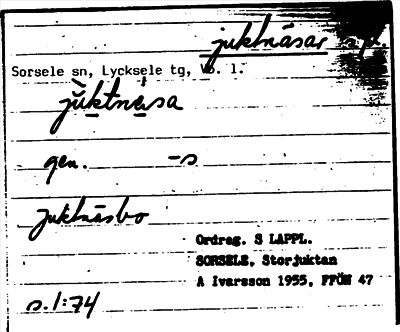 juktnäsar
Sorsele sn, Lycksele tg, Vb. l.
jùktnesa
gen. -s
juktnäsbo
Ordreg. S LAPPL.
SORSELE, Storjuktan
A Ivarsson 1955, FFÖN 47
s. 1:74